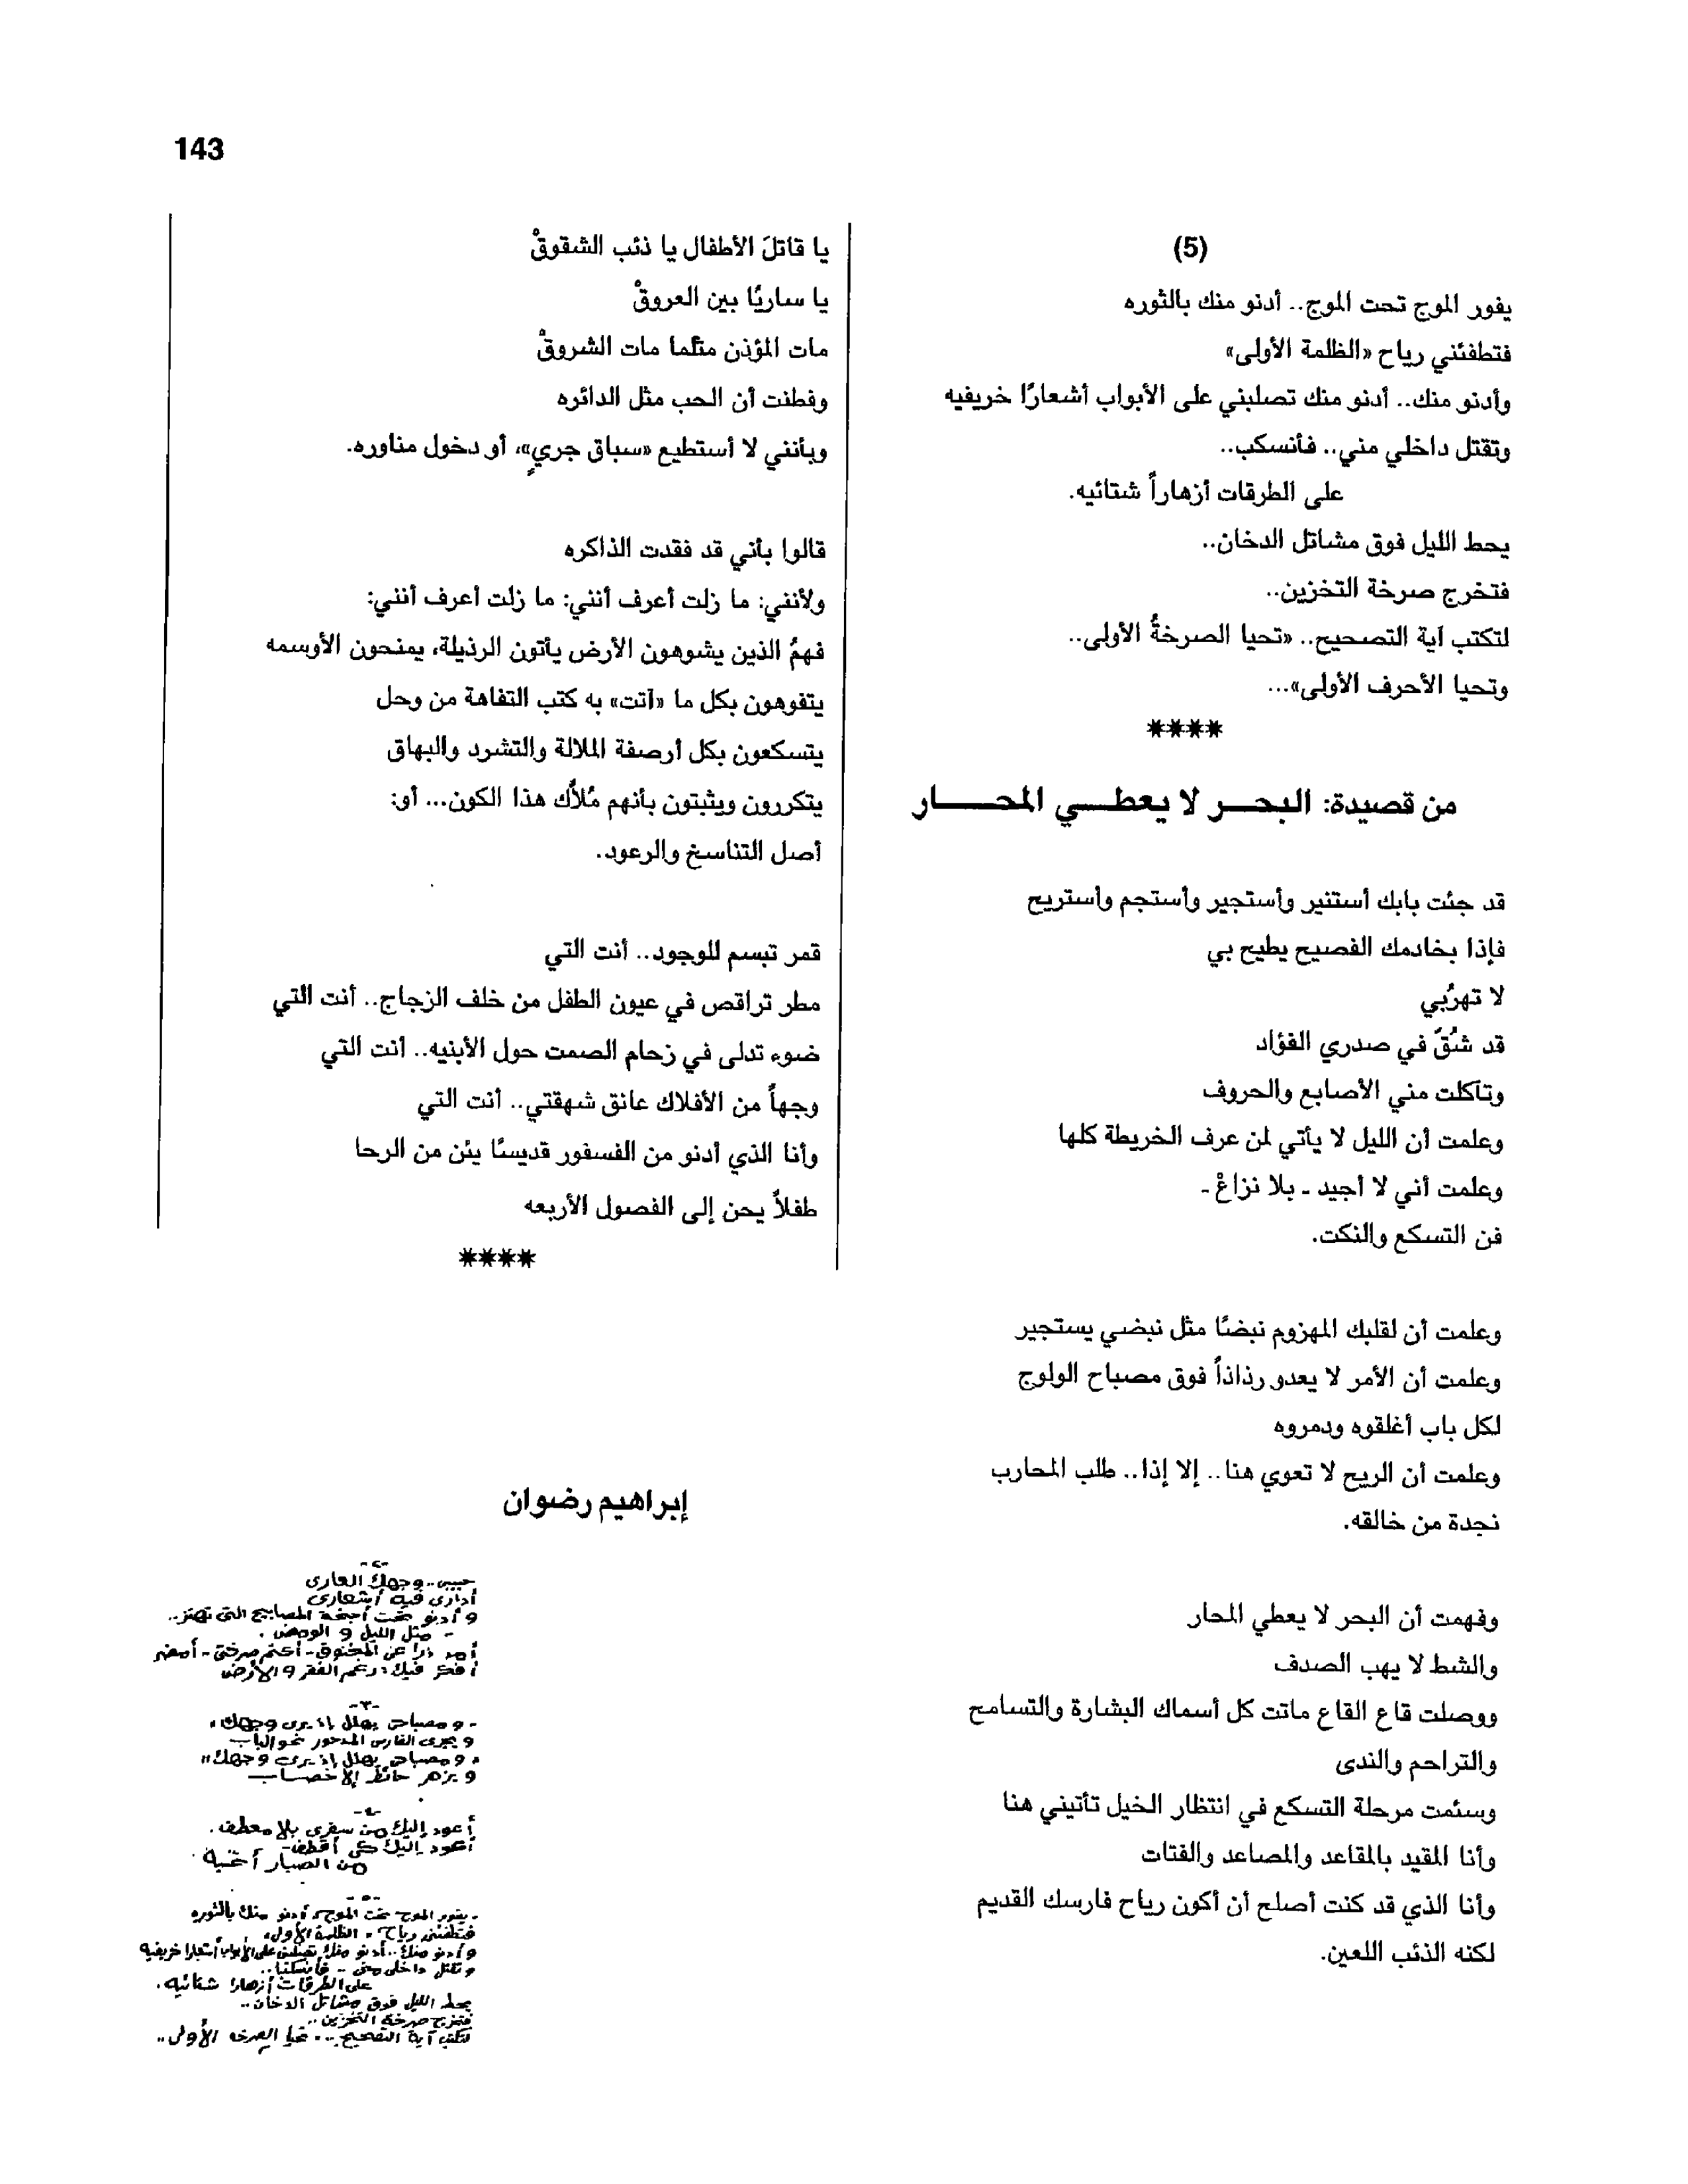 143
(5)
يفور الموج تحت الموج.. أدنو منك بالثوره
فتطفئني رياح «الظلمة الأولى»
وأدنو منك.. أدنو منك تصلبني على الأبواب أشعارًا خريفيه
وتقتل داخلي مني.. فأنسكب..
على الطرقات أزهاراً شتائيه.
يحط الليل فوق مشاتل الدخان..
فتخرج صرخة التخزين..
لتكتب آية التصحيح.. «تحيا الصرخةُ الأولى..
وتحيا الأحرف الأولى»...
****
من قصيدة: البحر لا يعطي المحار
قد جئت بابك أستنير وأستجير وأستجم وأستريح
فإذا بخادمك الفصيح يطيح بي
لا تهرُبي
قد شُقَّ في صدري الفؤاد
وتآكلت مني الأصابع والحروف
وعلمت أن الليل لا يأتي لمن عرف الخريطة كلها
وعلمت أني لا أجيد ـ بلا نزاعْ ـ
فن التسكع والنكت.
وعلمت أن لقلبك المهزوم نبضًا مثل نبضي يستجير
وعلمت أن الأمر لا يعدو رذاذاً فوق مصباح الولوج
لكل باب أغلقوه ودمروه
وعلمت أن الريح لا تعوي هنا.. إلا إذا.. طلب المحارب
نجدة من خالقه.
وفهمت أن البحر لا يعطي المحار
والشط لا يهب الصدف
ووصلت قاع القاع ماتت كل أسماك البشارة والتسامح
والتراحم والندى
وسئمت مرحلة التسكع في انتظار الخيل تأتيني هنا
وأنا المقيد بالمقاعد والمصاعد والفتات
وأنا الذي قد كنت أصلح أن أكون رياح فارسك القديم
لكنه الذئب اللعين.
يا قاتلَ الأطفال يا ذئب الشقوقْ
يا ساريًا بين العروقْ
مات المؤذن مثلما مات الشروقْ
وفطنت أن الحب مثل الدائره
وبأنني لا أستطيع «سباق جريٍ»، أو دخول مناوره.
قالوا بأني قد فقدت الذاكره
ولأنني: ما زلت أعرف أنني: ما زلت أعرف أنني:
فهمُ الذين يشوهون الأرض يأتون الرذيلة، يمنحون الأوسمه
يتفوهون بكل ما «آتت» به كتب التفاهة من وحل
يتسكعون بكل أرصفة الملالة والتشرد والبهاق
يتكررون ويثبتون بأنهم مُلاَّك هذا الكون... أو:
أصل التناسخ والرعود.
قمر تبسم للوجود.. أنت التي
مطر تراقص في عيون الطفل من خلف الزجاج.. أنت التي
ضوء تدلى في زحام الصمت حول الأبنيه.. أنت التي
وجهاً من الأفلاك عانق شهقتي.. أنت التي
وأنا الذي أدنو من الفسفور قديسًا يئن من الرحا
طفلاً يحن إلى الفصول الأربعه
****
إبراهيم رضوان
-٢-
حبيبى.. وجهك العارى
أدارى فيه أشعارى
وأدنو تحت أجنحة المصابيح التى تهتز..
- مثل الليل و الومض.
أكتم صرختى - أمضى
أفكر فيك: رغم الفقر والأرض
-٣-
- ومصباحى يهلل إذ يرى وجهك،
ويجرى الفارس المدحور نحو الباب
، ومصباحى يهلل إذ يرى وجهك"
ويزهر حائط الإخصاب
-٤-
أعود إليك من سفرى بلا معطف.
أعود إليك كى أقطف-
من الصبار أغنية.
-٥-
- يفور الموج تحت الموج. أدنو منك بالثوره
فتطفئنى رياح "الظلمة الأولى"
وأدنو منك.. أدنو منك تصلبنى على الأبواب أشعارا خريفيه
وتقتل داخلى منى.. فأنسكب..
على الطرقات أزهارا شتائيه.
يحط الليل فوق مشاتل الدخان..
فتخرج صرخة التخزين..
لتكتب آية التصحيح... تحيا الصرخة الأولى..